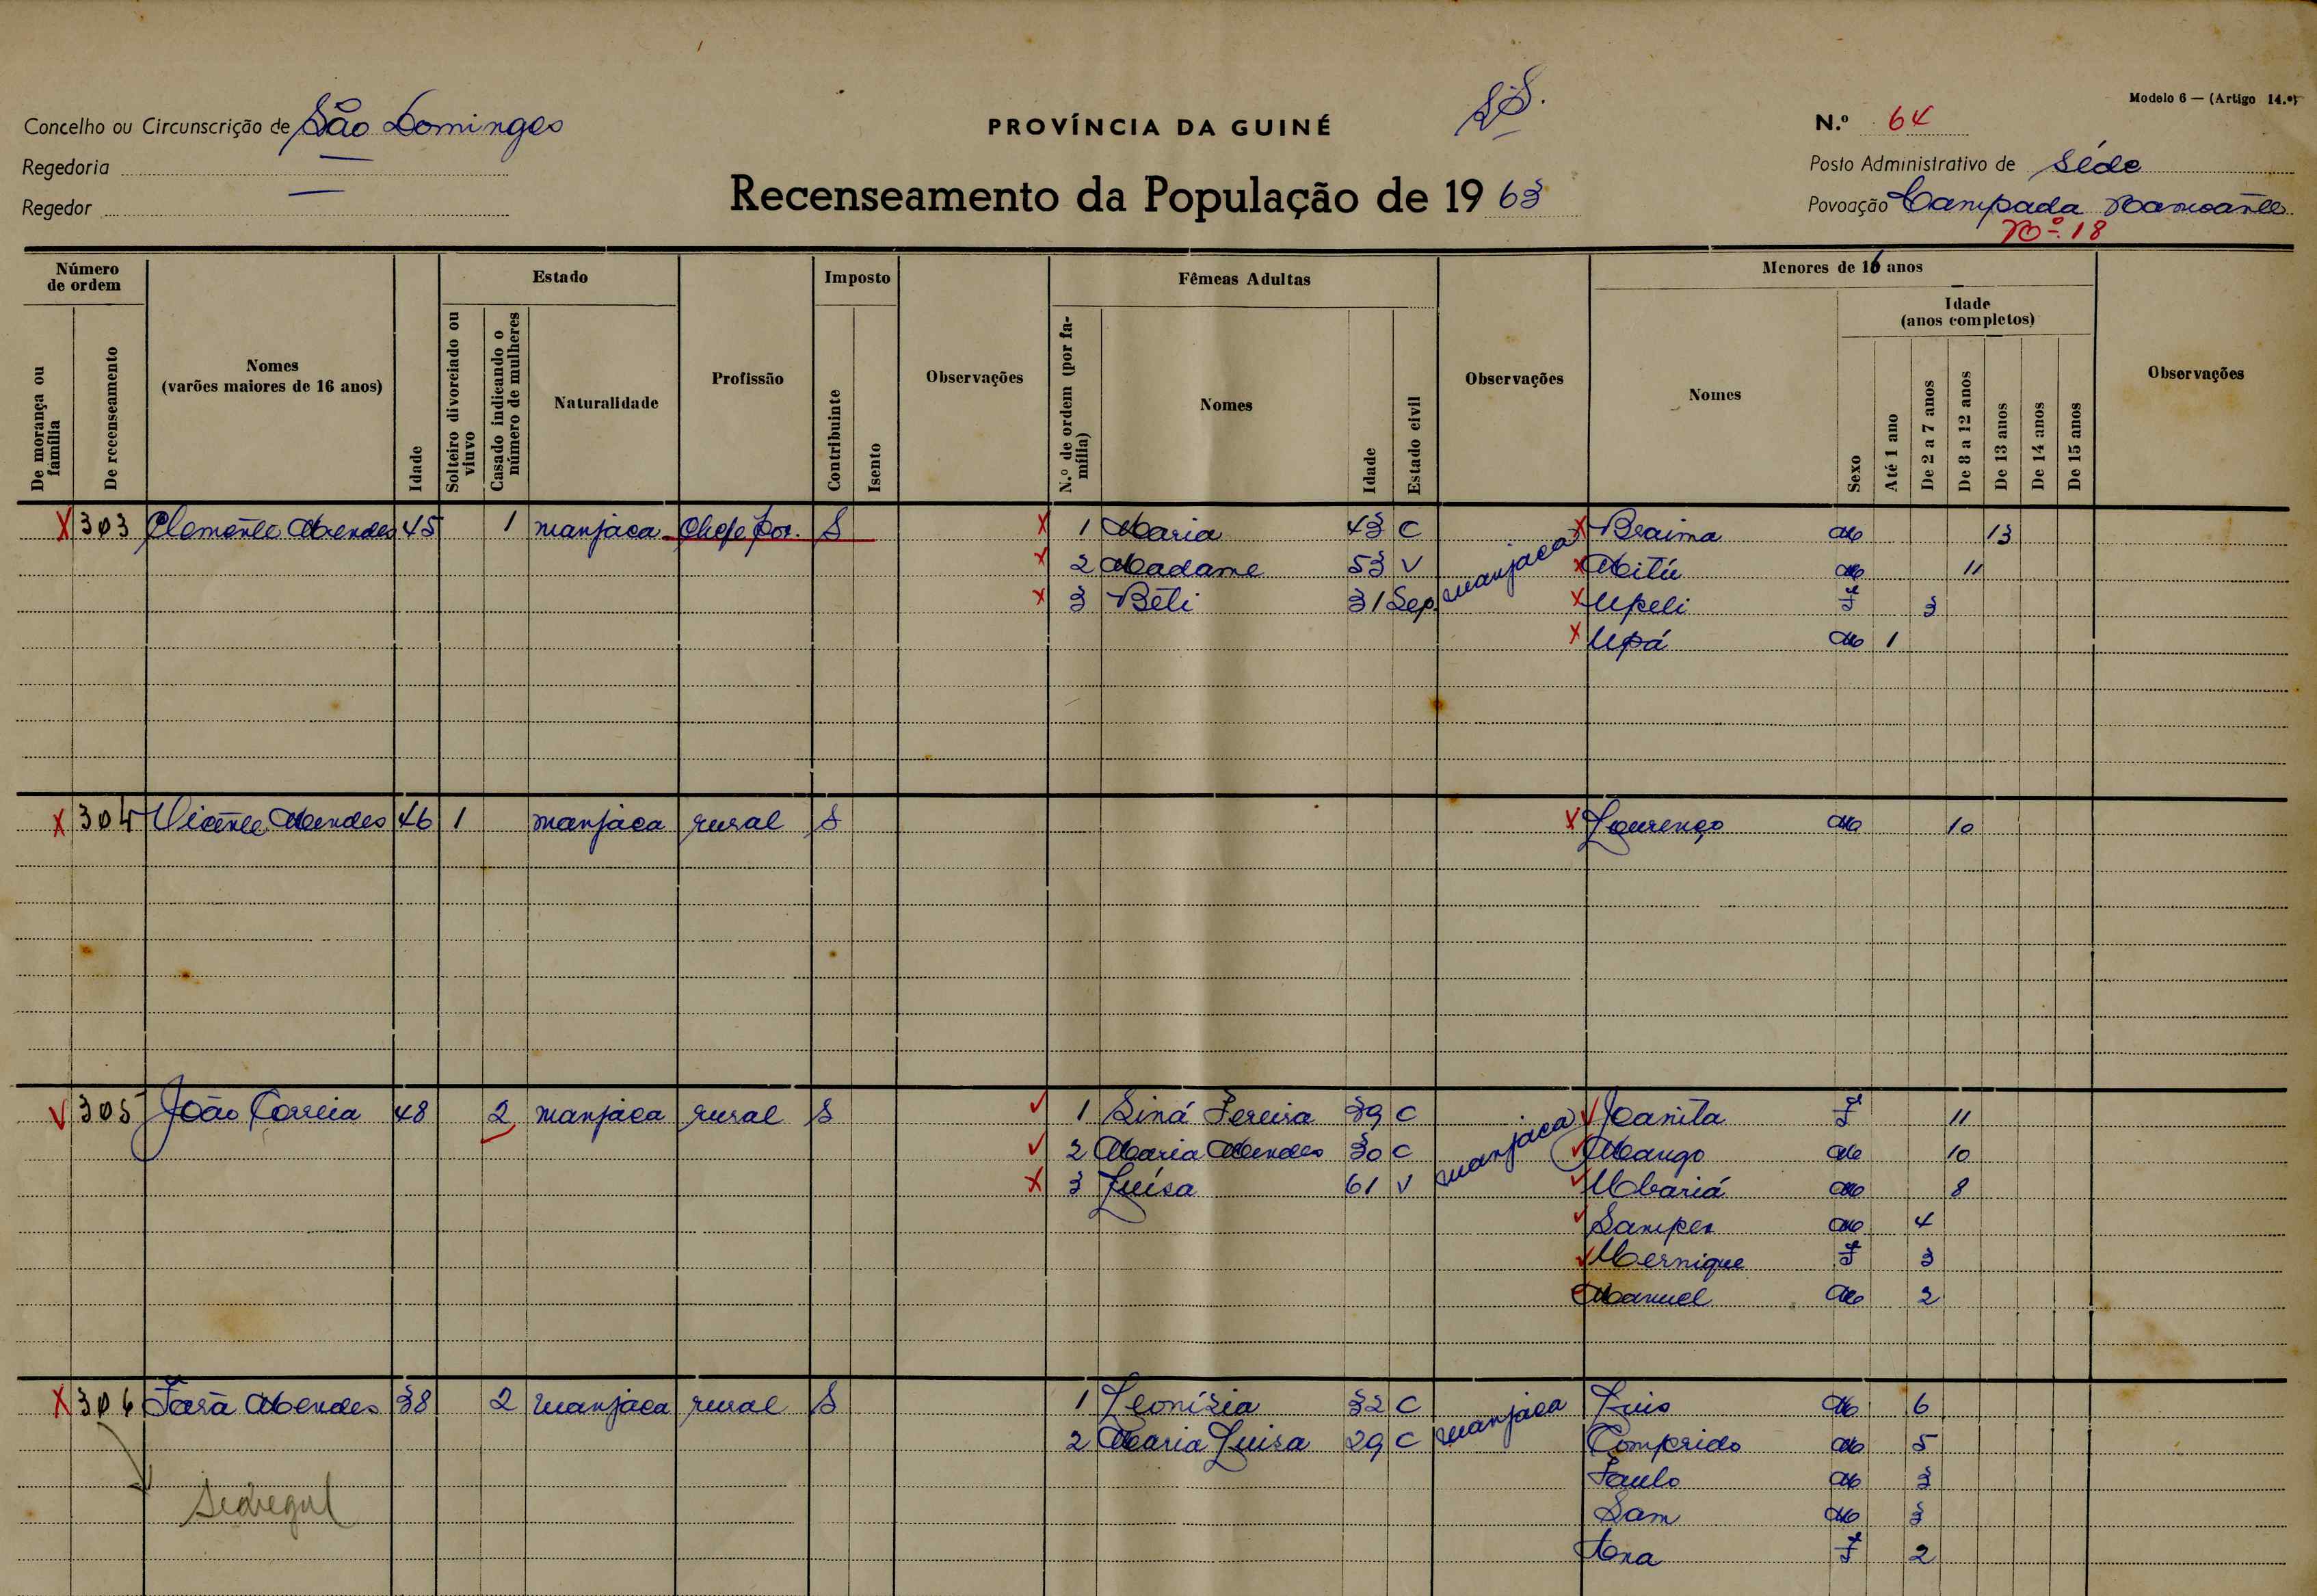 Modelo 6 — (Artigo 14.º)
Concelho ou Circunscrição de São Domingos
Regedoria —
Regedor —
PROVÍNCIA DA GUINÉ
Recenseamento da População de 1963
N.º 64
Posto Administrativo de Séde
Povoação Campada
Nº 18
Número de ordem
De morança ou família
De recenseamento
Nomes (varões maiores de 16 anos)
Idade
Estado
Solteiro divorciado ou viuvo
Casado indicando o número de mulheres
Naturalidade
Profissão
Imposto
Contribuinte
Isento
Observações
Fêmeas Adultas
N.º de ordem (por família)
Nomes
Idade
Estado civil
Observações
Menores de 16 anos
Nomes
Sexo
Idade (anos completos)
Até 1 ano
De 2 a 7 anos
De 8 a 12 anos
De 13 anos
De 14 anos
De 15 anos
Observações
X 303 Clemente Mendes 45 1 manjaca Chefe pov. S X 1 Maria 43 C manjaca X Braima M 13
X 2 Madame 53 V X Mitú M 11
X 3 Béti 31 Sep. X Upeli F 3
X Upá M 1
X 304 Vicente Mendes 46 1 manjaca rural S X Lourenço M 10
305 João Correia 48 2 manjaca rural S 1 Siná Pereira 39 C manjaca Joanita F 11
2 Maria Mendes 30 C Mango M 10
X 3 Luísa 61 V Mbariá M 8
Samper M 4
Mernique F 3
Manuel M 2
X 306 Fará Mendes 38 2 manjaca rural S 1 Leonísia 32 C manjaca Luis M 6
2 Maria Luisa 29 C Comprido M 5
Paulo M 3
Senegal
Sam M 3
Ana F 2